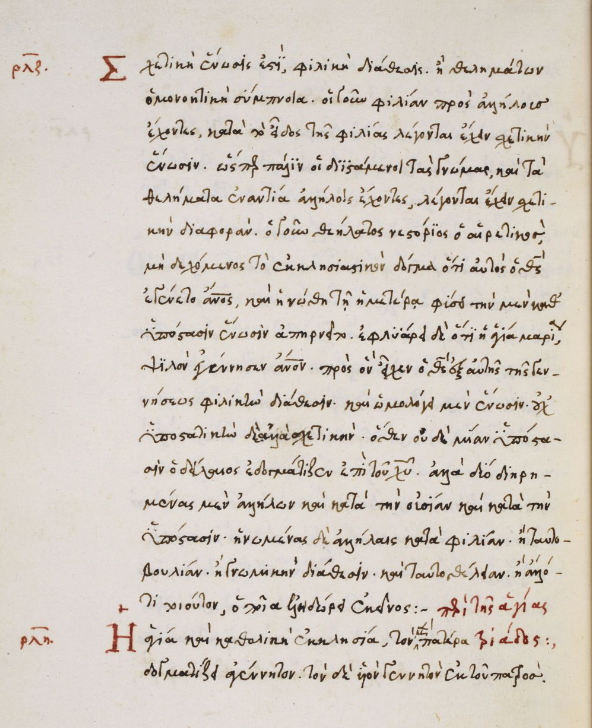 ρλζ. Σχετικὴ ἕνωσίς ἐστι, φιλικὴ διάθεσις. ἢ θελημάτων
ὁμονοητικὴ σύμπνοια. οἱ γοῦν φιλίαν πρὸς ἀλλήλους
ἔχοντες, κατὰ τὸ εἶδος τῆς φιλίας λέγονται ἔχειν σχετικὴν
ἕνωσιν. ὥσπερ πάλιν οἱ διϊστάμενοι τὰς γνώμας, καὶ τὰ
θελήματα ἐναντία ἀλλήλοις ἔχοντες, λέγονται ἔχειν σχετι-
κὴν διαφοράν. ὁ γοῦν θεήλατος νεστόριος ὁ αἱρετικὸς,
μὴ δεχόμενος τὸ ἐκκλησιαστικὸν δόγμα ὅτι αὐτὸς ὁ θς
ἐγένετο ἄνος, καὶ ἡνώθη τῇ ἡμετέρᾳ φύσει τὴν μὲν καθ'
ὑπόστασιν ἕνωσιν ἀπηρνεῖτο. ἐφλυάρει δὲ ὅτι ἡ ἁγία μαρία,
ψιλὸν ἐγέννησεν ἄνον. πρὸς ὃν εἶχεν ὁ θς ἐξ αὐτῆς τῆς γεν-
νήσεως φιλικὴν διάθεσιν. καὶ ὡμολόγει μὲν ἕνωσιν. οὐχ
ὑποστατικὴν δὲ ἀλλὰ σχετικήν. ὅθεν οὐδὲ μίαν ὑπόστα-
σιν ὁ δείλαιος ἐδογμάτιζεν ἐπὶ τοῦ χυ. ἀλλὰ δύο διῃρη-
μένας μὲν ἀλλήλων καὶ κατὰ τὴν οὐσίαν καὶ κατὰ τὴν
ὑπόστασιν. ἡνωμένας δὲ ἀλλήλαις κατὰ φιλίαν. ἢ ταυτο-
βουλίαν. ἢ γνωμικὴν διάθεσιν. καὶ ταυτοθέλειαν. ἢ ἄλλό
τι τοιοῦτον, ὁποῖα ἐκεῖνος:- περὶ τῆς ἁγίας
ρλη. Ἡ ἁγία καὶ καθολικὴ ἐκκλησία, τὸν πατέρα τριάδος:,
δογματίζει ἀγέννητον. τὸν δὲ υἱὸν γεννητὸν ἐκ τοῦ πατρός.